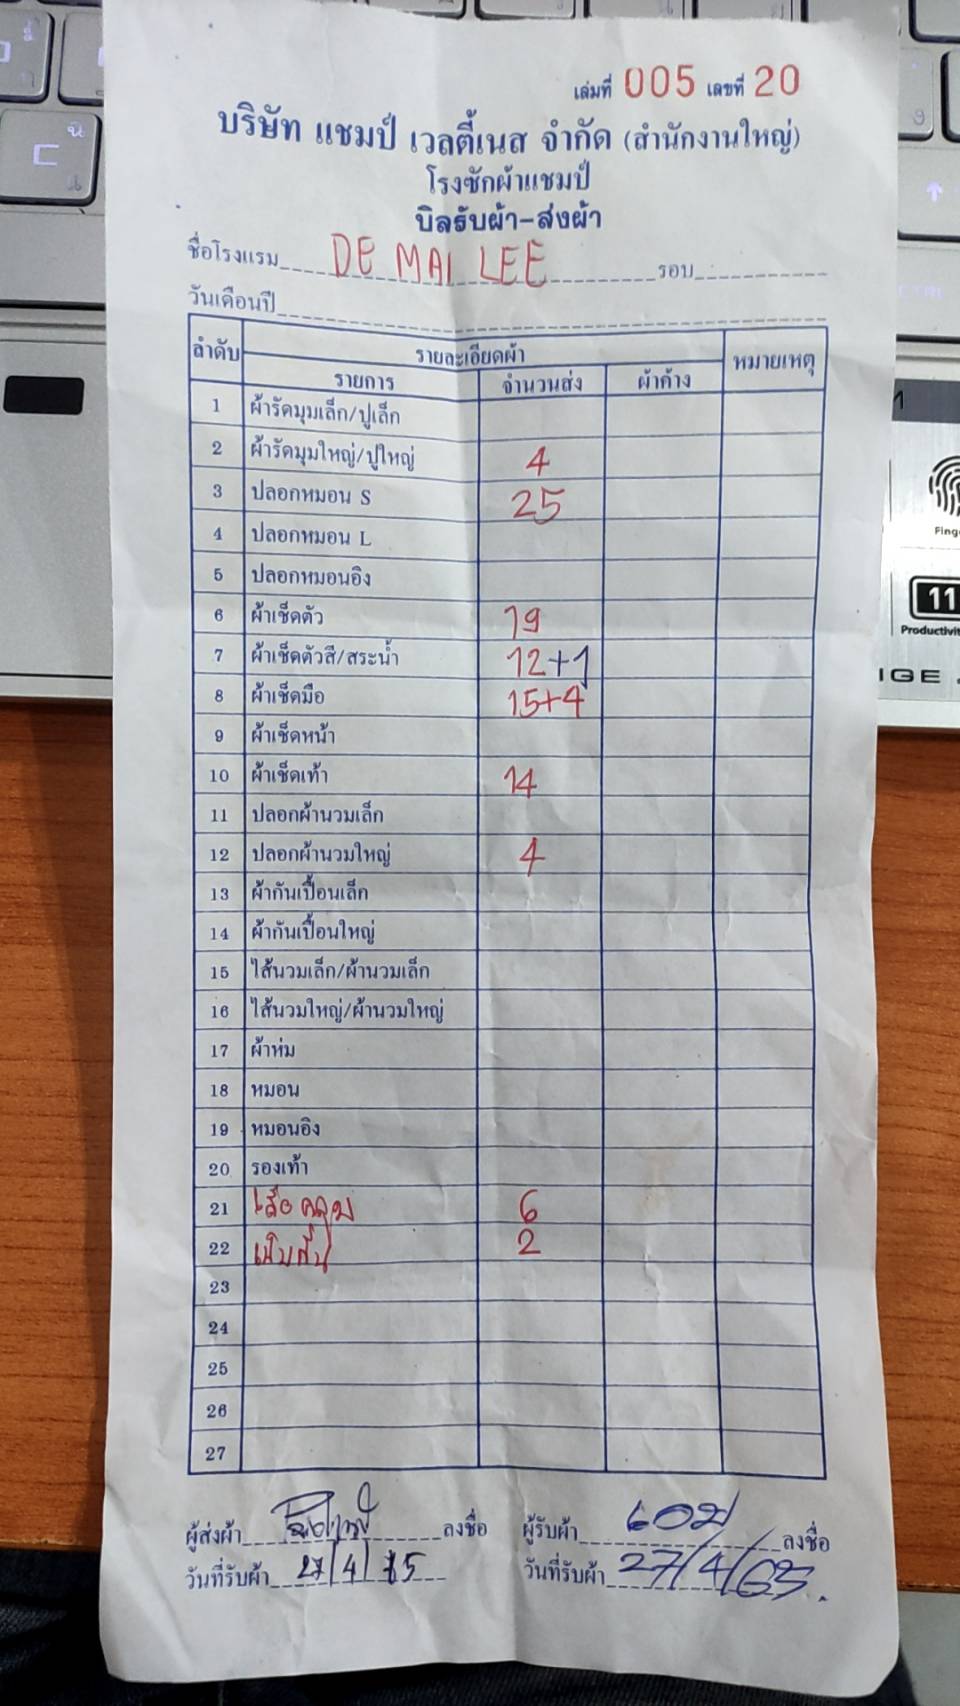 เล่มที่ 005 เลขที่ 20
บริษัท แชมป์ เวลตี้เนส จำกัด (สำนักงานใหญ่)
โรงซักผ้าแชมป์
บิลรับผ้า-ส่งผ้า
ชื่อโรงแรม DE MAI LEE รอบ
วันเดือนปี
ลำดับ รายละเอียดผ้า หมายเหตุ
รายการ จำนวนส่ง ผ้าค้าง
1 ผ้ารัดมุมเล็ก/ปูเล็ก
2 ผ้ารัดมุมใหญ่/ปูใหญ่ 4
3 ปลอกหมอน S 25
4 ปลอกหมอน L
5 ปลอกหมอนอิง
6 ผ้าเช็ดตัว 19
7 ผ้าเช็ดตัวสี/สระน้ำ 12+1
8 ผ้าเช็ดมือ 15+4
9 ผ้าเช็ดหน้า
10 ผ้าเช็ดเท้า 14
11 ปลอกผ้านวมเล็ก
12 ปลอกผ้านวมใหญ่ 4
13 ผ้ากันเปื้อนเล็ก
14 ผ้ากันเปื้อนใหญ่
15 ไส้นวมเล็ก/ผ้านวมเล็ก
16 ไส้นวมใหญ่/ผ้านวมใหญ่
17 ผ้าห่ม
18 หมอน
19 หมอนอิง
20 รองเท้า
21 เสื้อคลุม 6
22 2
23
24
25
26
27
ผู้ส่งผ้า ลงชื่อ ผู้รับผ้า ลงชื่อ
วันที่รับผ้า 27/4/ วันที่รับผ้า 27/4/65
Fing
11
Productivit
IGE